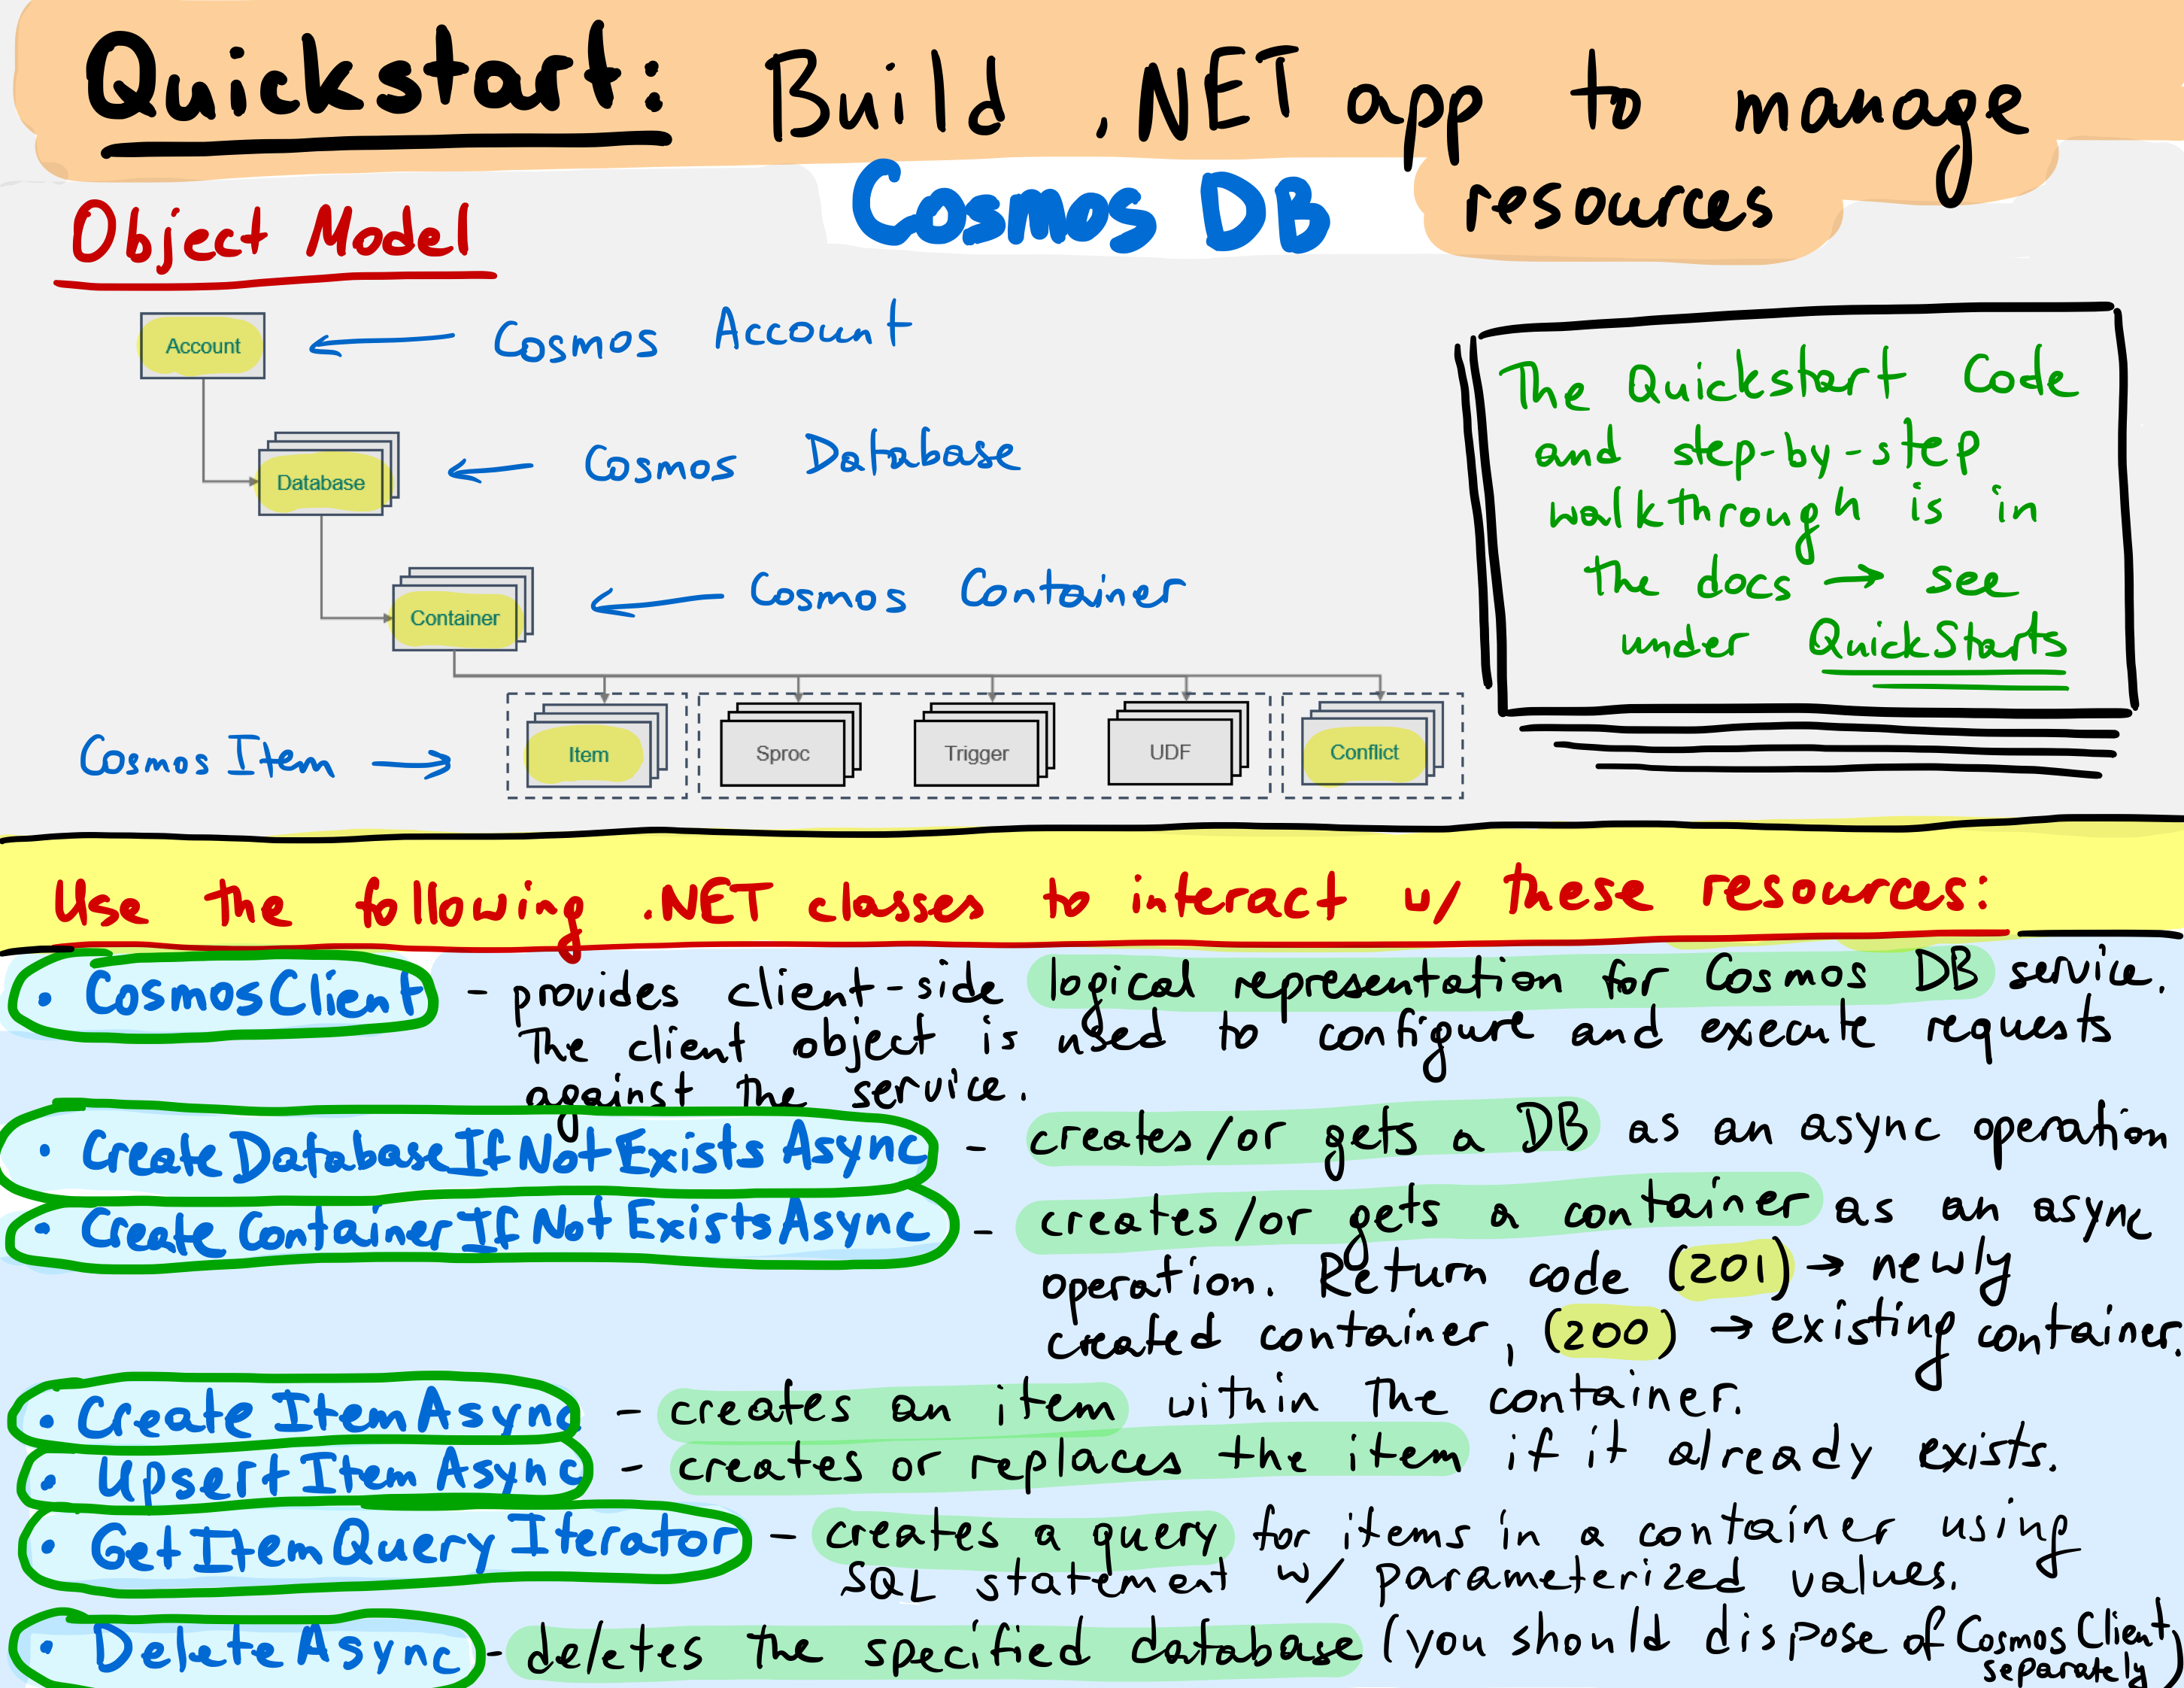 Quickstart: Build .NET app to manage
Cosmos DB resources
Object Model
Account
Cosmos Account
Database
Cosmos Database
Container
Cosmos Container
Cosmos Item
Item
Sproc
Trigger
UDF
Conflict
The Quickstart Code
and step-by-step
walkthrough is in
the docs → see
under QuickStarts
Use the following .NET classes to interact w/ these resources:
• CosmosClient - provides client-side logical representation for Cosmos DB service.
The client object is used to configure and execute requests
against the service.
• CreateDatabaseIfNotExistsAsync - creates/or gets a DB as an async operation
• CreateContainerIfNotExistsAsync - creates/or gets a container as an async
operation. Return code (201) → newly
created container, (200) → existing container.
• CreateItemAsync - creates an item within the container.
• UpsertItemAsync - creates or replaces the item if it already exists.
• GetItemQueryIterator - creates a query for items in a container using
SQL statement w/ parameterized values.
• DeleteAsync - deletes the specified database (you should dispose of Cosmos Client
separately)